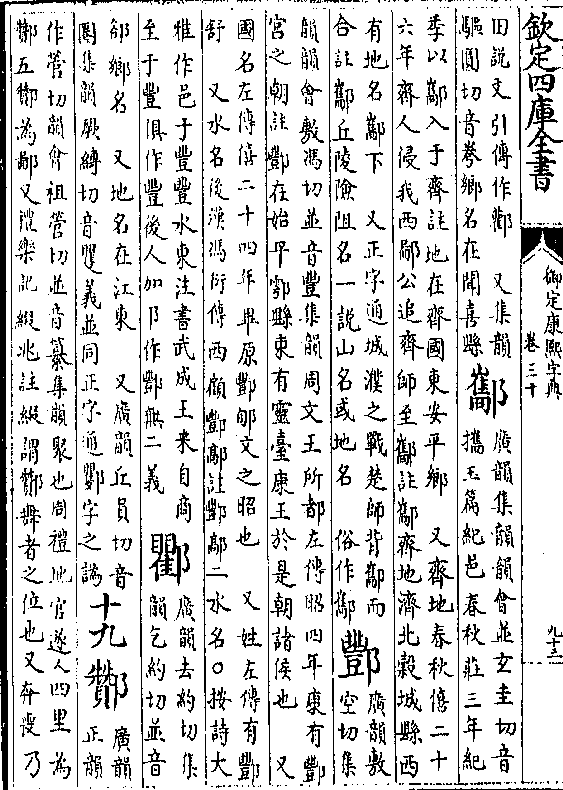 欽定四庫全書
御定康熙字典
卷三十
九十三
旧説文引傳作酄 又集韻
驅圓切音惓鄉名在聞喜縣
酅
廣韻集韻韻會並玄圭切音
攜玉篇紀邑春秋莊三年紀
季以酅入于齊註地在齊國東安平鄉 又齊地春秋僖二十
六年齊人侵我西鄙公追齊師至酅註酅齊地濟北穀城縣西
有地名酅下 又正字通城濮之戰楚師背酅而
舍註酅丘陵險阻名一説山名或地名 俗作酅
酆
廣韻敷
空切集
韻韻會敷馮切並音豐集韻周文王所都左傳昭四年康有酆
宮之朝註酆在始平鄠縣東有靈臺康王於是朝諸侯也 又
國名左傳僖二十四年畢原酆郇文之昭也 又姓左傳有酆
舒 又水名後漢馮衍傳西顧酆鄗註酆鄗二水名○按詩大
雅作邑于豐豐水東注書武成王来自商
至于豐俱作豐後人加阝作酆無二義
廣韻去約切集
韻乞約切並音
郤鄉名 又地名在江東 又廣韻丘員切音
圈集韻厥縛切音矍義並同正字通字之譌
十九
酇
廣韻
正韻
作管切韻會祖管切並音纂集韻聚也周禮地官遂人四里為
酇五酇為鄙又禮樂記綴兆註綴謂酇舞者之位也又奔喪乃